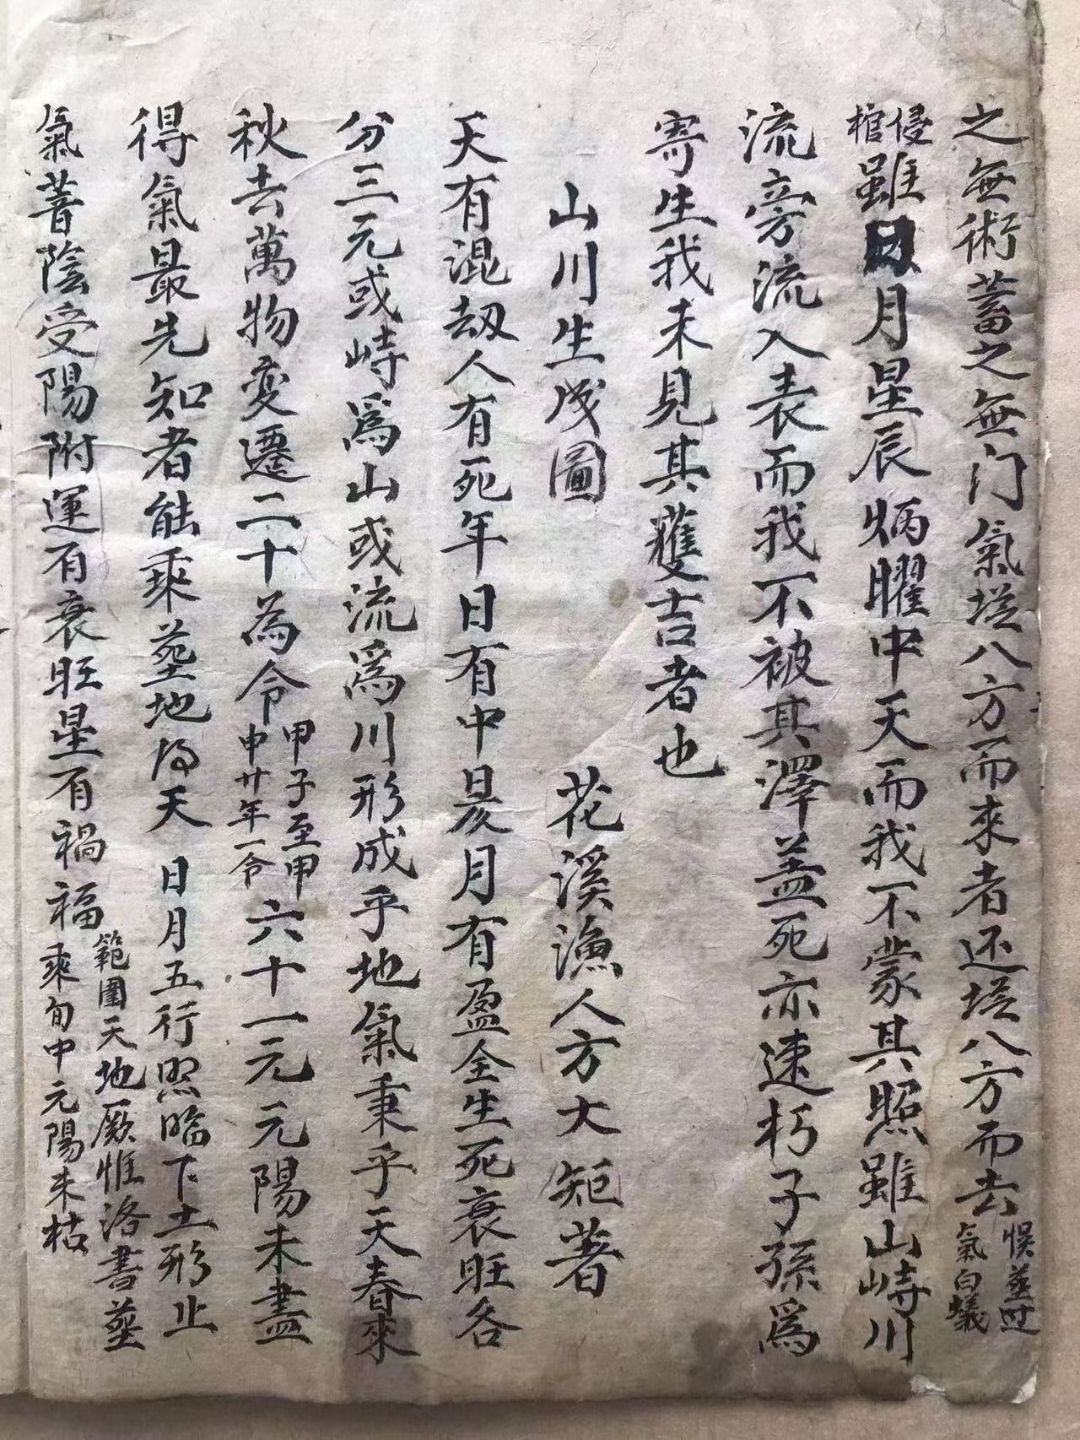 之無術蓄之無门氣塔八方而來者还塔八方而去悮葬过氣白蟻
侵棺雖日月星辰炳曜中天而我不蒙其照雖山峙川
流旁流入表而我不被其澤盖死亦速朽子孫爲
寄生我未見其獲吉者也
山川生成圖 花溪漁人方大矩著
天有混劫人有死年日有中昃月有盈全生死衰旺各
分三元或峙爲山或流爲川形成乎地氣秉乎天春來
秋去萬物变遷二十為令甲子至甲申廿年一令六十一元元陽未盡
得氣最先知者能乘葬地得天 日月五行照臨下土形止
氣蓄陰受陽附運有衰旺星有禍福範圍天地厥惟洛書葬乘旬中元陽未枯